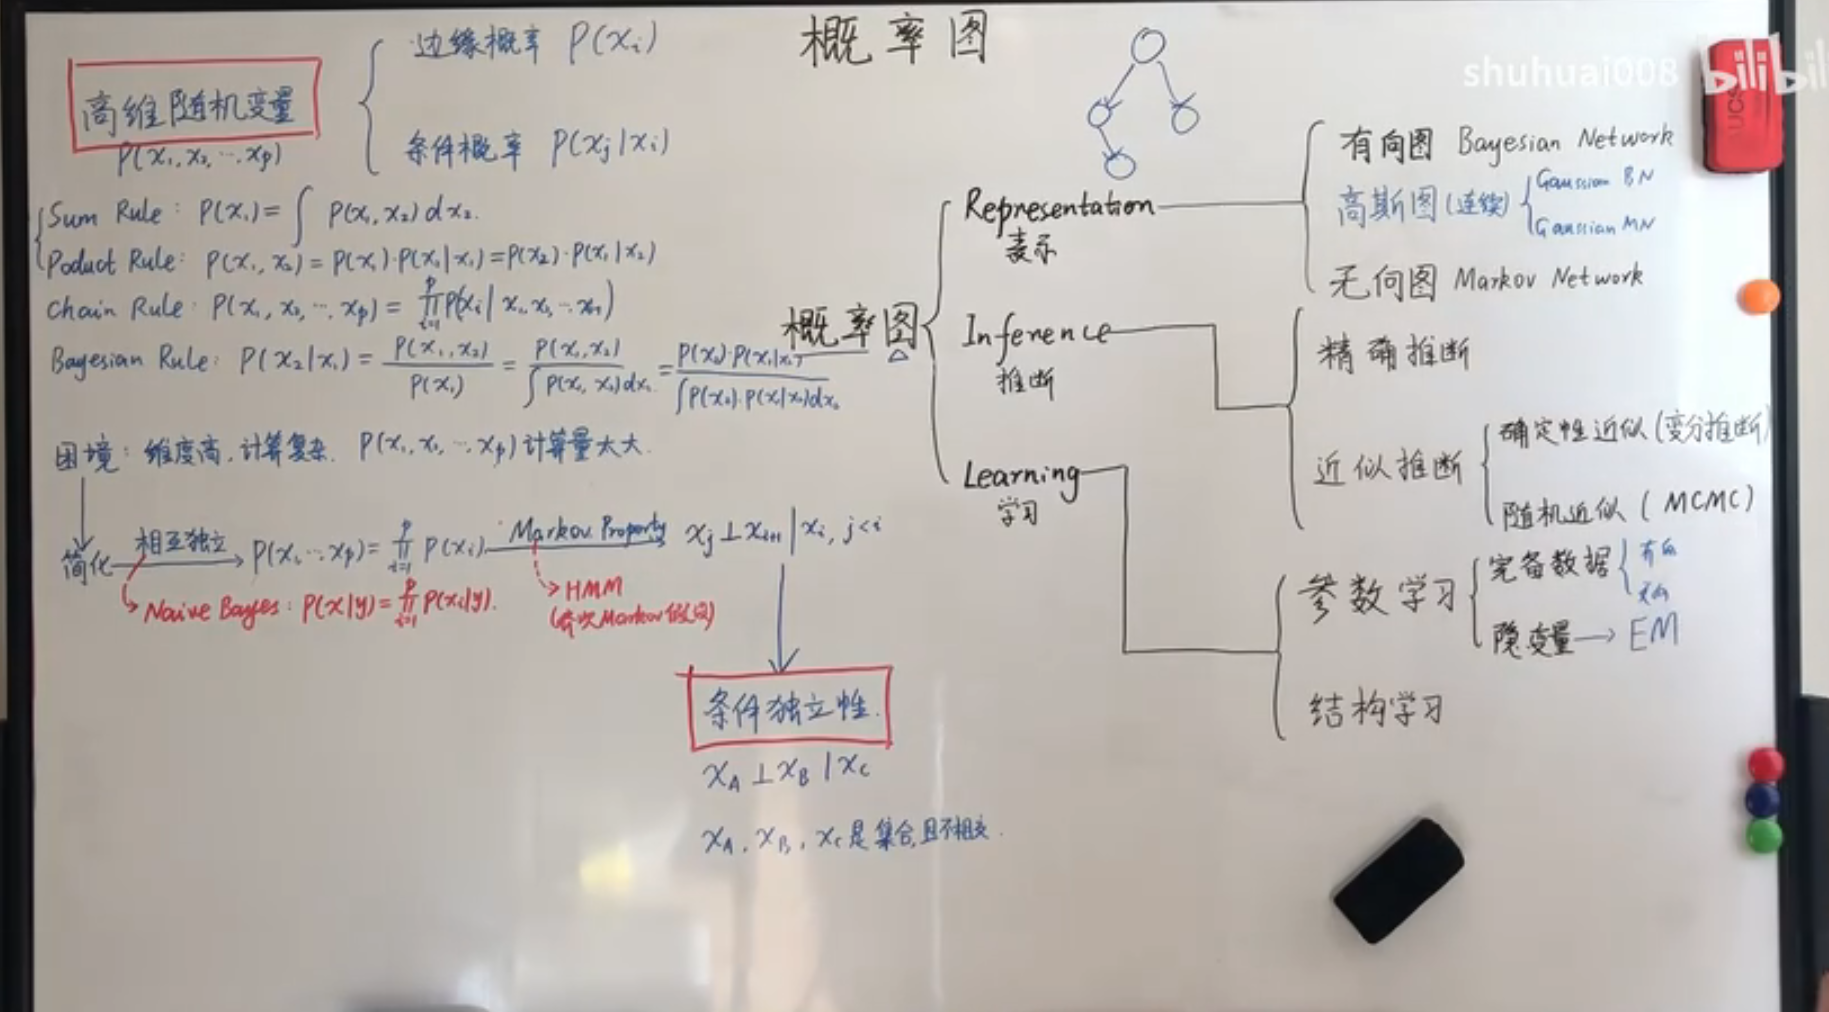 概率图
shuhuai008 bilibili
UCS
高维随机变量
P(x₁, x₂, ⋯, xₚ)
边缘概率 P(xᵢ)
条件概率 P(xⱼ|xᵢ)
Sum Rule: P(x₁) = ∫ P(x₁, x₂) dx₂.
Poduct Rule: P(x₁, x₂) = P(x₁)·P(x₂|x₁) = P(x₂)·P(x₁|x₂)
Chain Rule: P(x₁, x₂, ⋯, xₚ) = ∏ᵢ₌₁ᵖ P(xᵢ|x₁, x₂, ⋯ xᵢ₋₁)
Bayesian Rule: P(x₂|x₁) = P(x₁, x₂) / P(x₁) = P(x₁, x₂) / ∫ P(x₁, x₂) dx₂ = P(x₂)·P(x₁|x₂) / ∫ P(x₂)·P(x₁|x₂) dx₂
困境: 维度高, 计算复杂. P(x₁, x₂, ⋯, xₚ) 计算量太大.
简化 相互独立 → P(x₁, ⋯ xₚ) = ∏ᵢ₌₁ᵖ P(xᵢ) Markov Property xⱼ ⊥ xᵢ₊₁ | xᵢ, j < i
Naive Bayes: P(x|y) = ∏ᵢ₌₁ᵖ P(xᵢ|y).
HMM
(齐次Markov假设)
条件独立性.
x_A ⊥ x_B | x_C
x_A, x_B, x_C 是集合, 且不相交.
概率图
Representation
表示
有向图 Bayesian Network
高斯图(连续)
Gaussian BN
Gaussian MN
无向图 Markov Network
Inference
推断
精确推断
近似推断
确定性近似(变分推断)
随机近似(MCMC)
Learning
学习
参数学习
完备数据
有向
无向
隐变量 → EM
结构学习